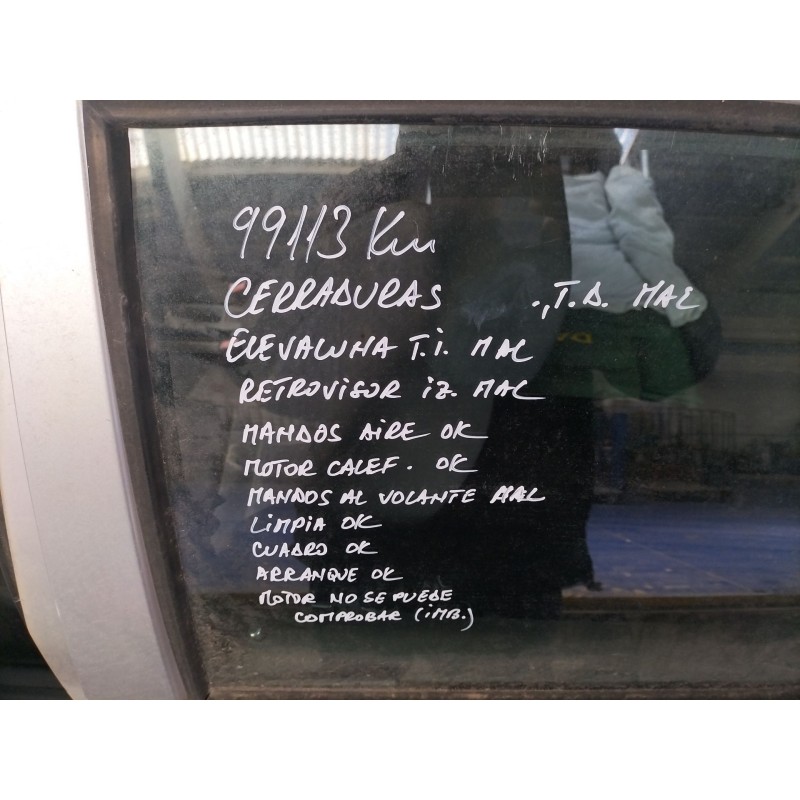 99113 Km
CERRADURAS ., T.D. MAL
ELEVALUNA T.I. MAL
RETROVISOR IZ. MAL
MANDOS AIRE OK
MOTOR CALEF. OK
MANDOS AL VOLANTE MAL
LIMPIA OK
CUADRO OK
ARRANQUE OK
MOTOR NO SE PUEDE
COMPROBAR (IMB.)